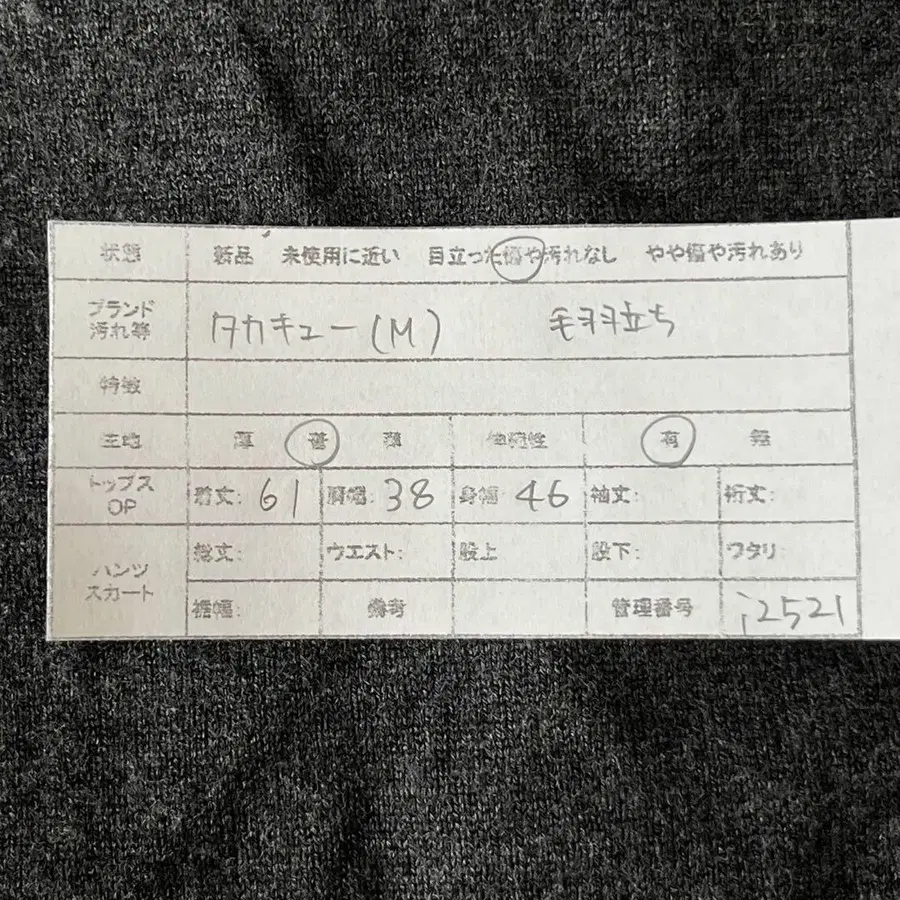 状態 新品 未使用に近い 目立った傷や汚れなし やや傷や汚れあり
ブランド タカキュー(M) 毛羽立ち
汚れ等
特徴
生地 厚 普 薄 伸縮性 有 無
トップス 着丈: 61 肩幅: 38 身幅: 46 袖丈: 裄丈:
OP
パンツ 総丈: ウエスト: 股上 股下: ワタリ:
スカート 裾幅: 備考 管理番号 i2521